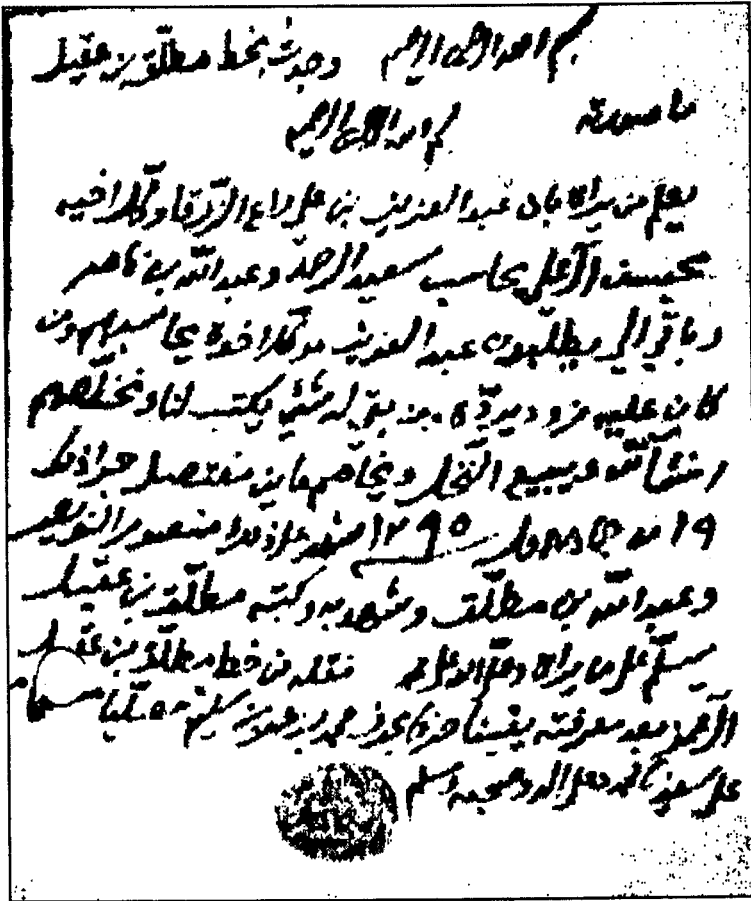 بسم الله الرحمن الرحيم وجدت بخط مطلق بن عقيل
ما صورته بسم الله الرحمن الرحيم
يعلم من يراه بان عبد العزيز بن علي راع الزرقا وكل اخيه
محسن آل علي يحاسب سعيد الرحمة وعبد الله بن ناصر
وباقي الي يطلبون عبد العزيز موكل اخوه يحاسبهم ومن
كان عليه مزود يرده ومن بقي له شي يكتب لنا ونخلصهم
انشا الله ويبيع النخل ويخاصم جرا ذلك
19 من 1295 شهد على ذلك منصور
وعبد الله بن مطلق وشهد به وكتبه مطلق بن عقيل
يسلم على من يراه نقله من خط مطلق بن عقيل
بعد معرفته يقينا حرفا بحرف محمد بن مصليا مسلما
على محمد وعلى اله وصحبه وسلم